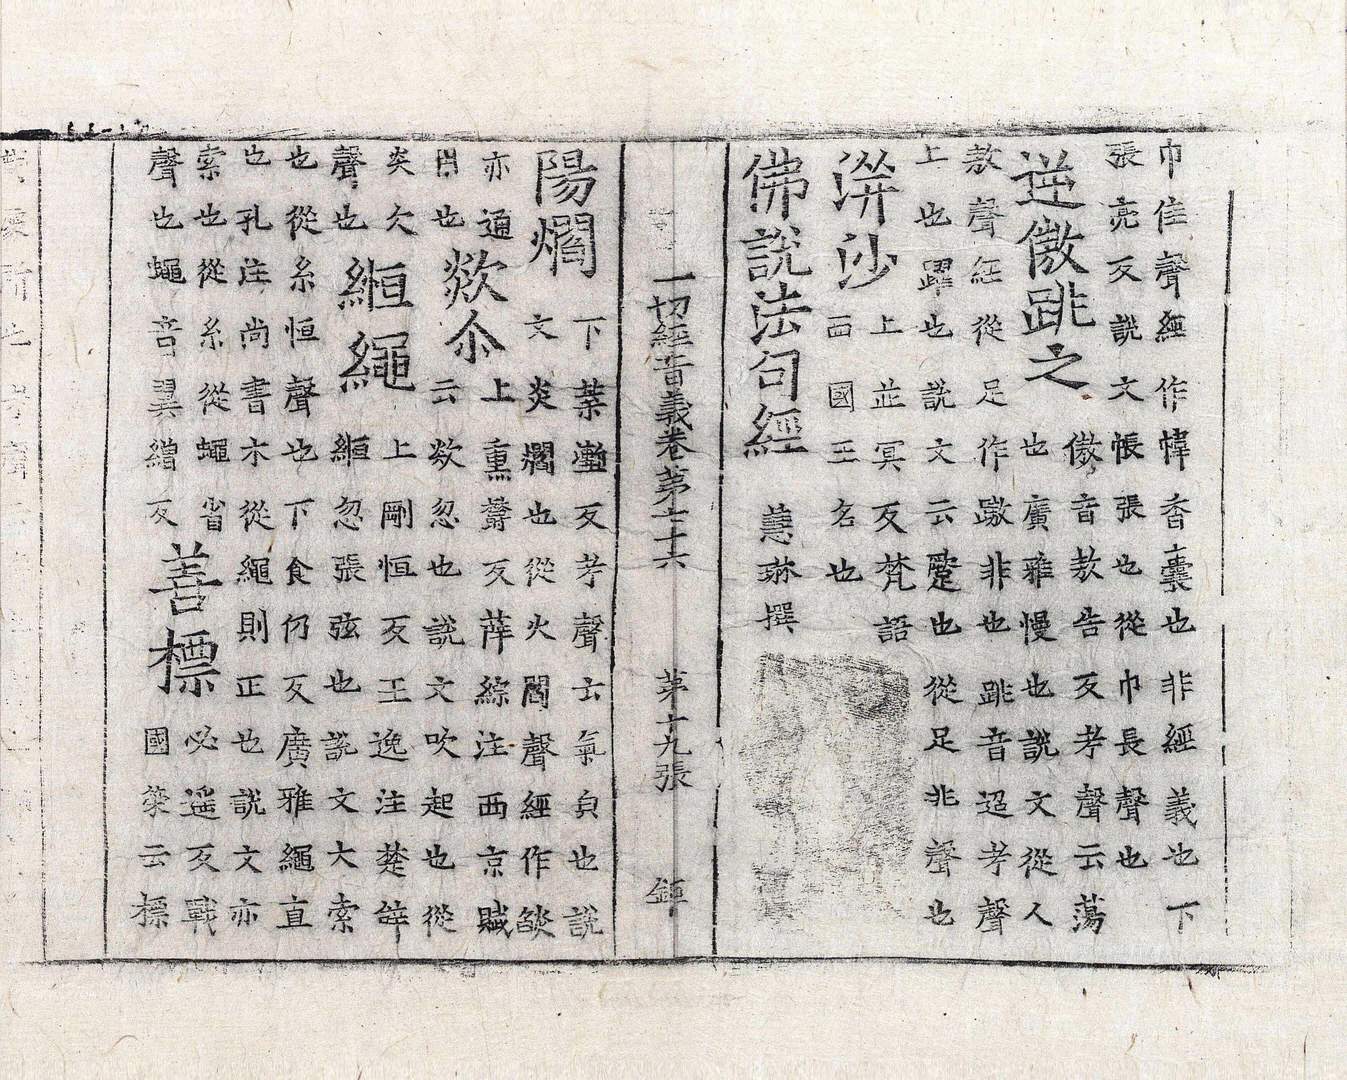 巾隹聲經作幃香囊也非經義也下
張亮反說文帳張也從巾長聲也
逆傲跳之
傲音敖告反考聲云蕩
也廣雅慢也說文從人
敖聲経從足作䠂非也跳音迢考聲
上也躍也說文云蹷也從足兆聲也
洴沙
上並冥反梵語
西國王名也
佛說法句經 慧琳撰
一切經音義卷第七十六 第十九張 鉅
陽爓
下葉漸反考聲云氣皃也說
文炎爓也從火閻聲經作燄
亦通
用也
欻尒
上熏欝反薛綜注西京賦
云欻忽也說文吹起也從
炎欠
聲也
緪繩
上剛恒反王逸注楚辞
緪忽張弦也說文大索
也從糸恒聲也下食仍反廣雅繩直
也孔注尚書木從繩則正也說文亦
索也從糸從蠅省
聲也蠅音翼繒反
善標
必遥反戰
國策云標